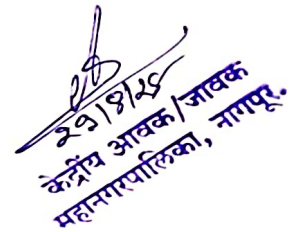 29/8/25
केंद्रीय आवक/जावक
महानगरपालिका, नागपूर.